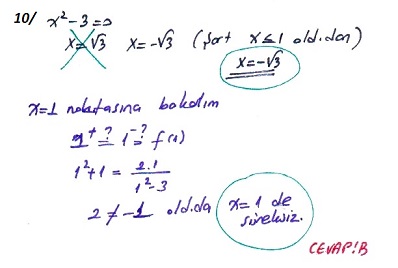 10/ x² - 3 = 0
x = √3 x = -√3 (şart x ≤ 1 old.dan)
x = -√3
x = 1 noktasına bakalım
1⁺ ≟ 1⁻ ≟ f(1)
1² + 1 = 2.1 / 1² - 3
2 ≠ -1 old.da x = 1 de
süreksiz.
CEVAP: B